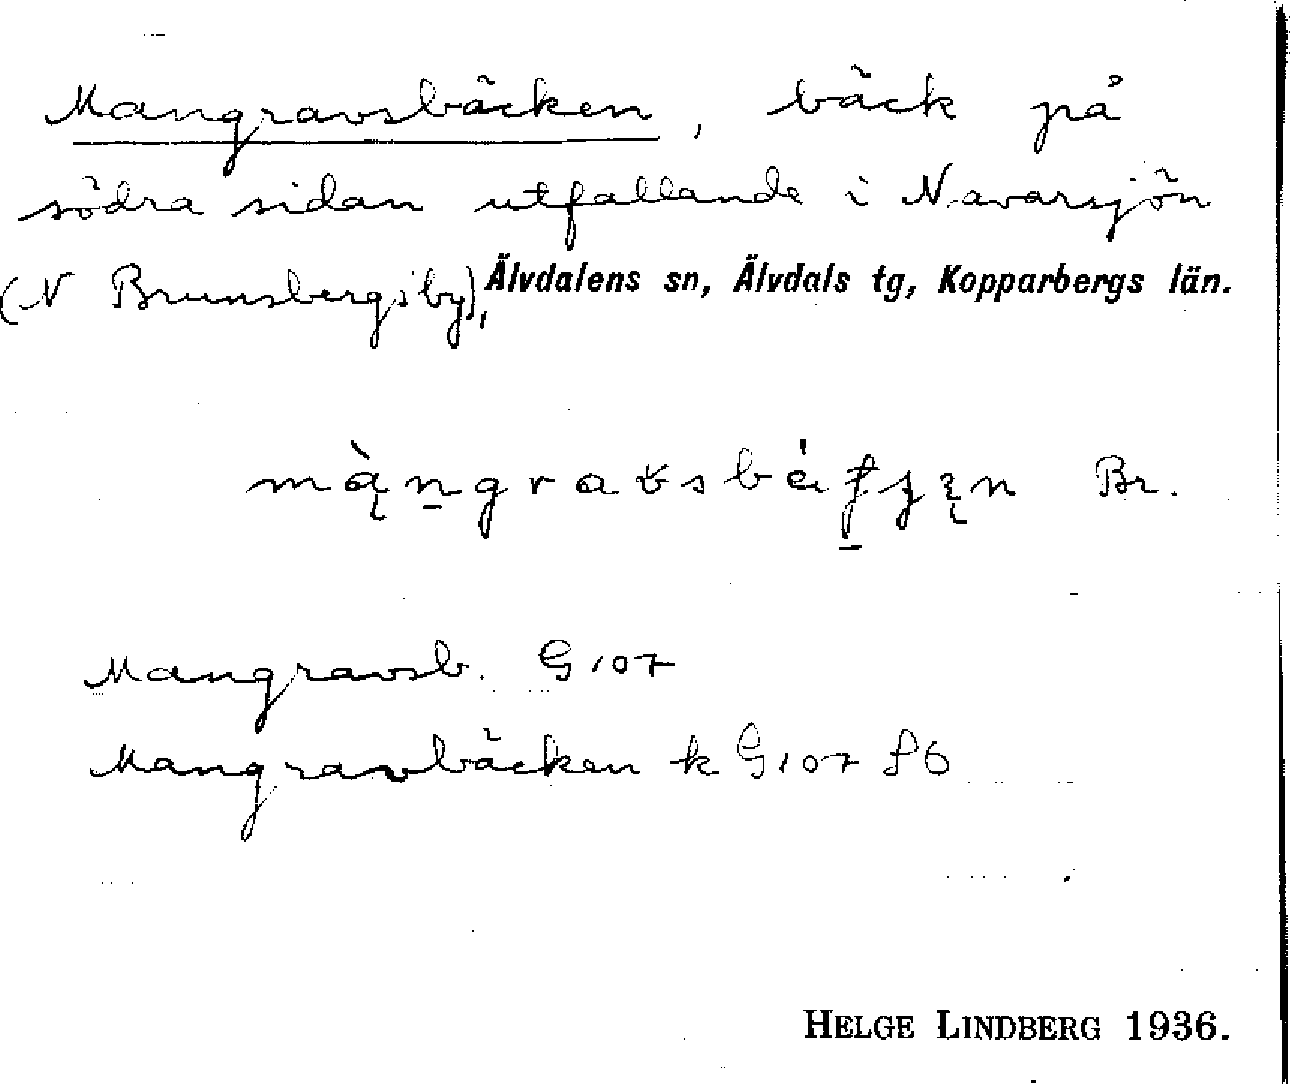 Mangravsbäcken, bäck på
södra sidan utfallande i Navarsjön
(N Brunsbergs by), Älvdalens sn, Älvdals tg, Kopparbergs län.
Br.
Mangravsb. G 107
Mangravbäcken k G 107 f 6
HELGE LINDBERG 1936.